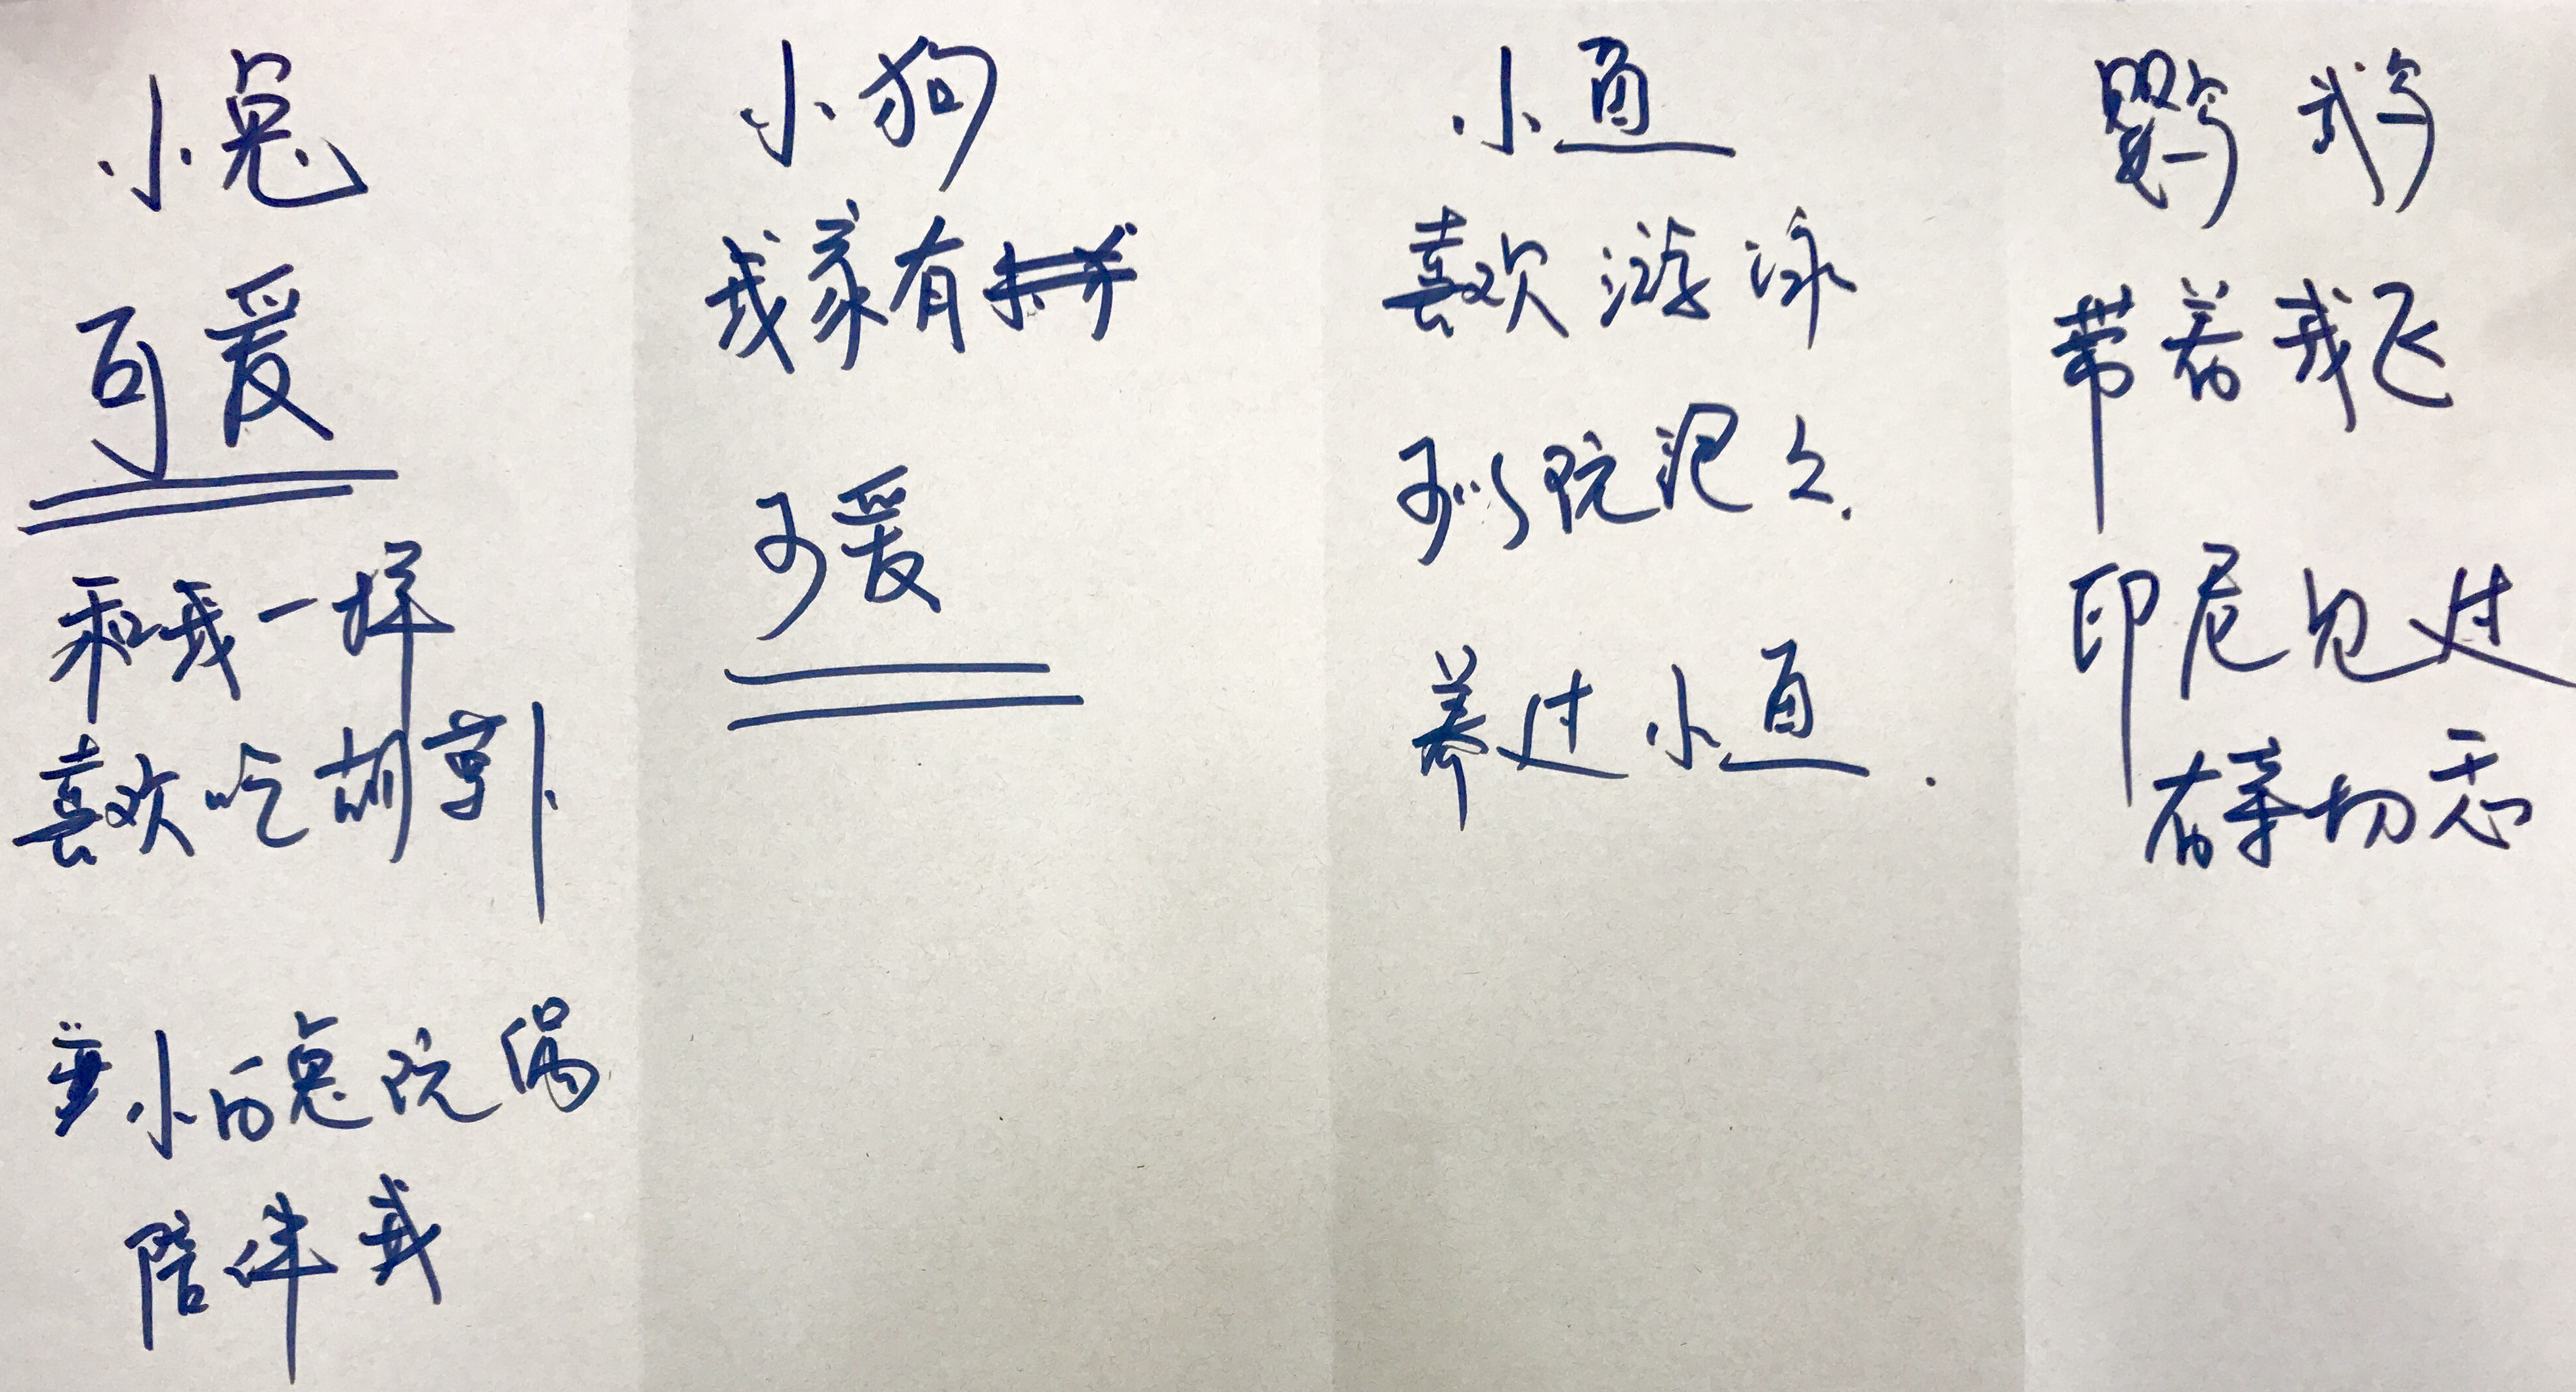 小兔
可爱
和我一样
喜欢吃胡萝卜
小白兔玩偶
陪伴我
小狗
我家有
可爱
小鱼
喜欢游泳
可以玩很久.
养过小鱼.
鹦鹉
带着我飞
印尼见过
有亲切感